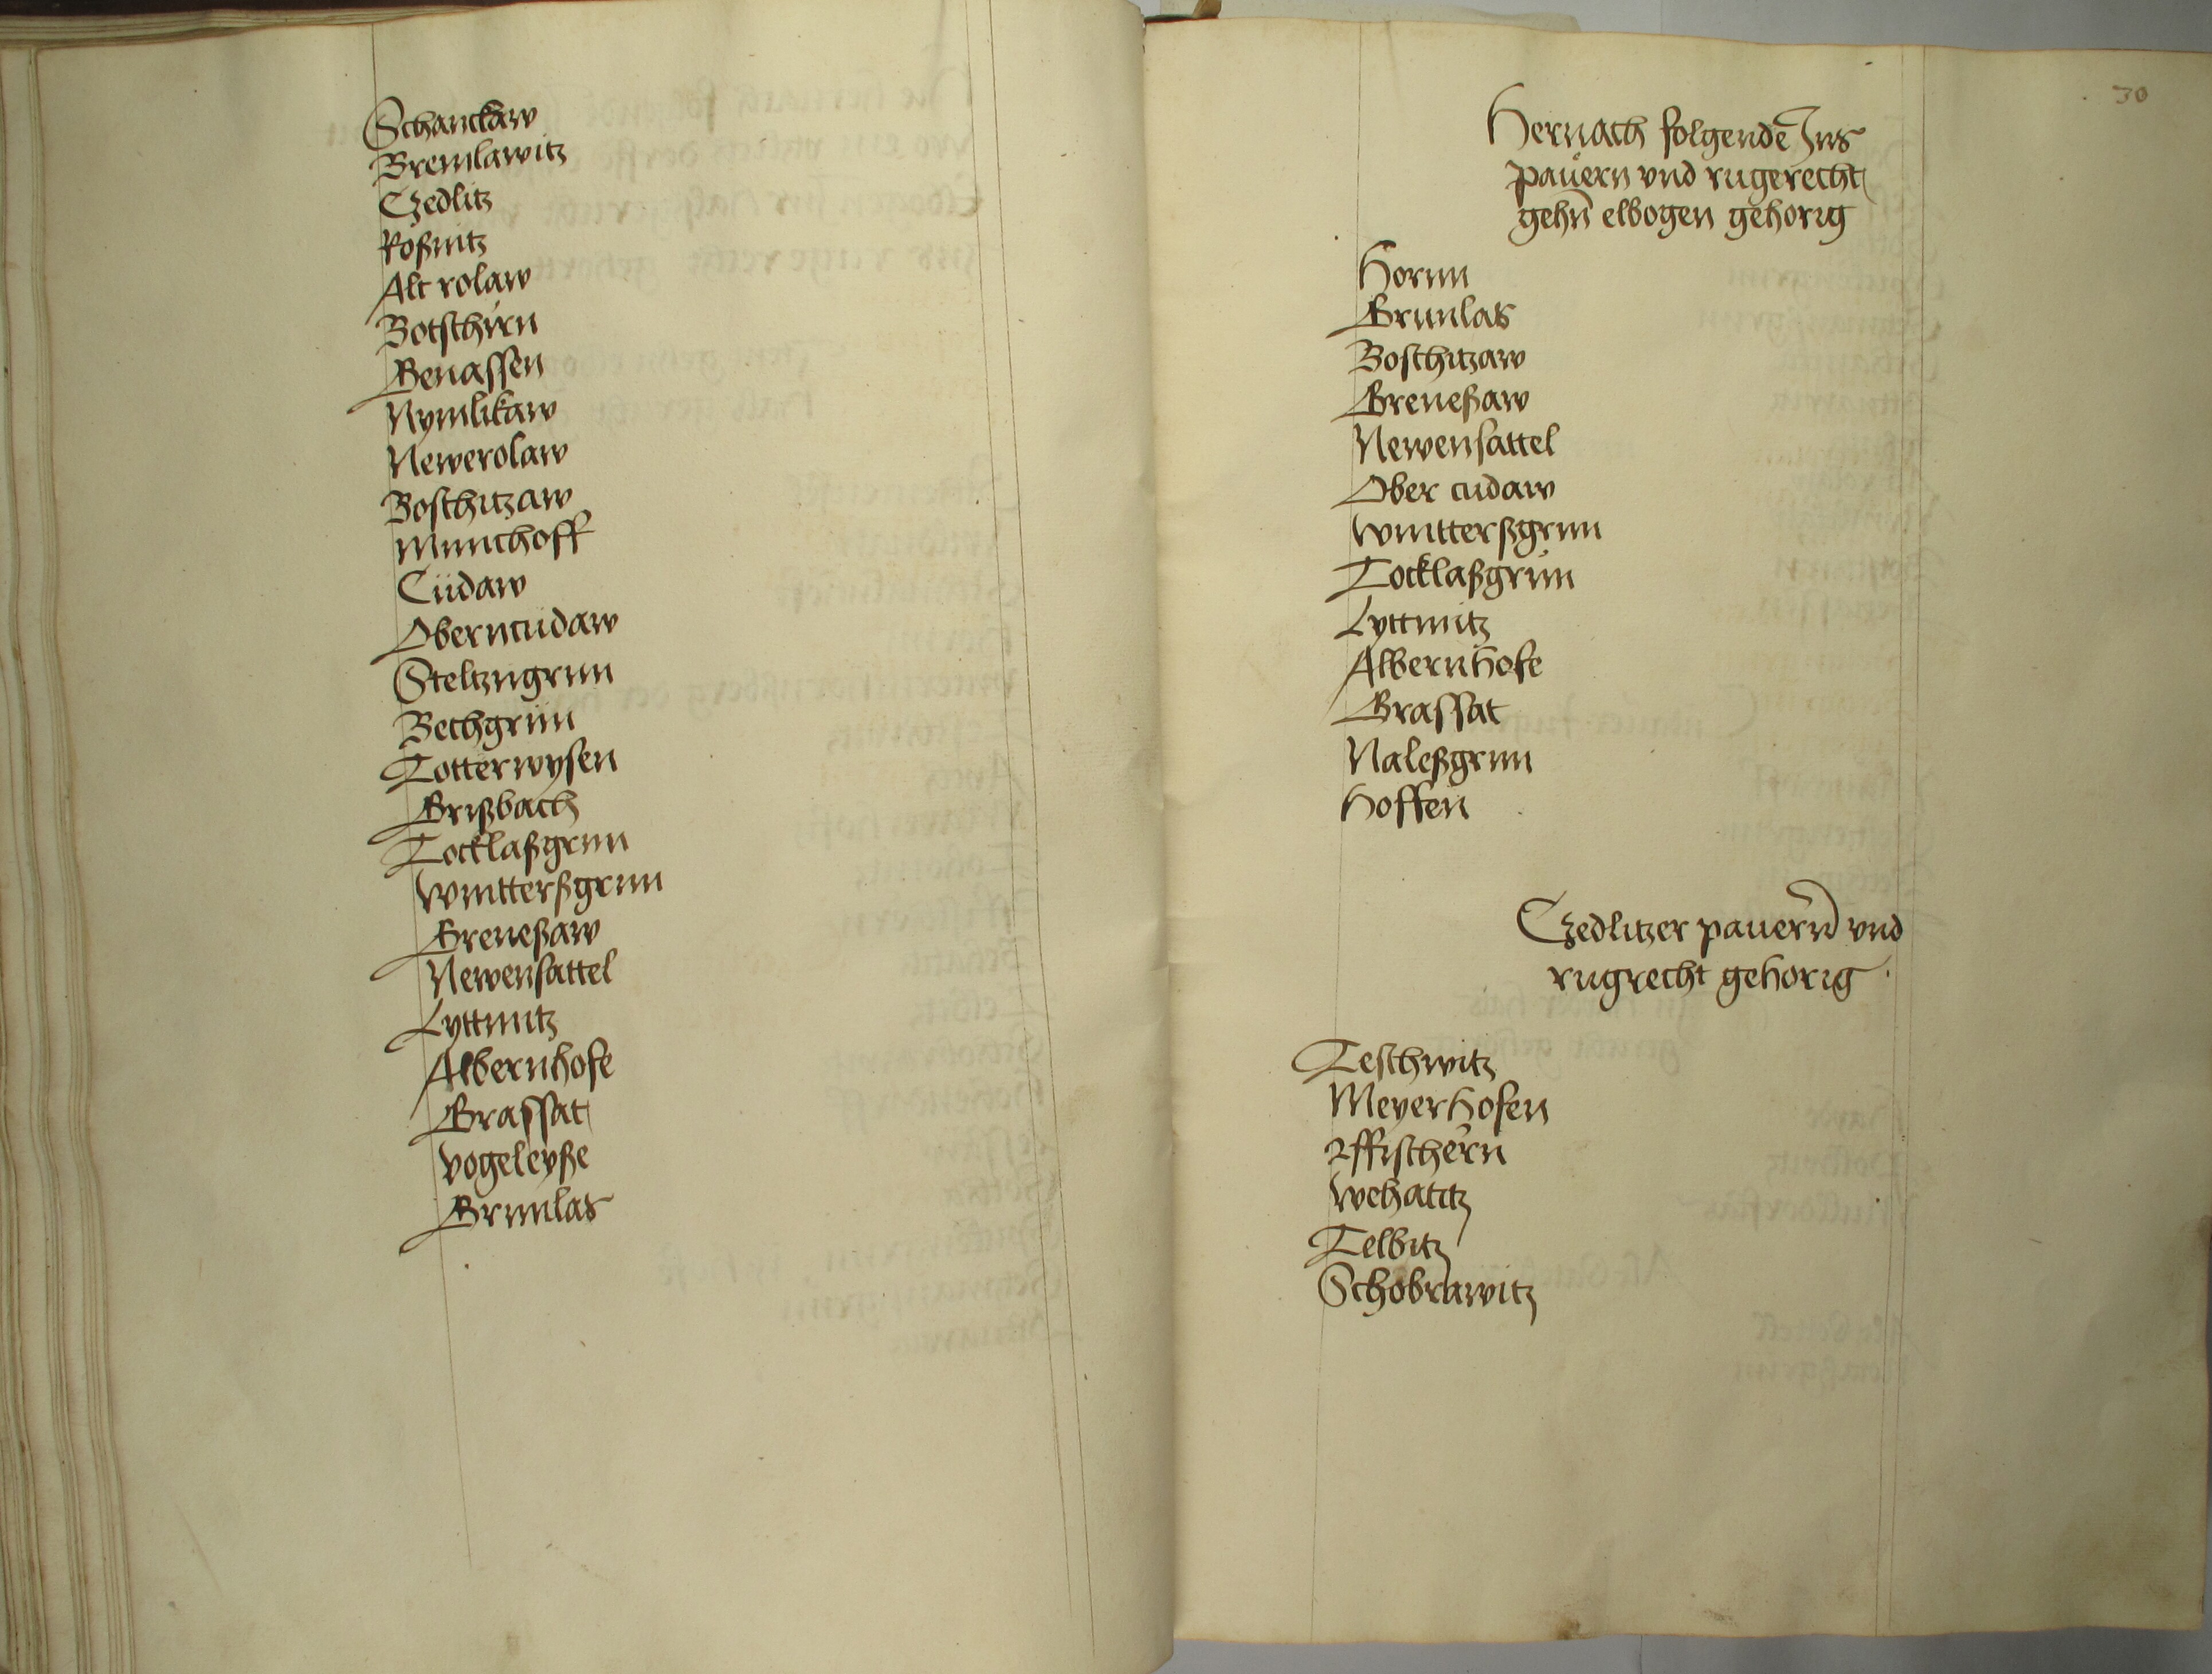 Schanckaw
Bremlawitz
Czedlitz
Roßnitz
Alt rolaw
Botschirn
Benassen
Nymlikaw
Newerolaw
Boschitzaw
Munchoff
Cüdaw
Oberncudaw
Steltzngrun
Bechgrün
Totterwysen
Grißbach
Tocklaßgrun
Wintterßgrun
Greneßaw
Newensattel
Lyttnitz
Albernhofe
Grassat
Vogeleyße
Grunlas
30
Hernach folgende Ins
pauern vnd rugerecht
gehn elbogen gehorig
Hornn
Grunlas
Boschitzaw
Greneßaw
Newensattel
Ober cudaw
Wintterßgrun
Tocklaßgrün
Lyttnitz
Albernhofe
Grassat
Naleßgrun
Hoffen
Czedlitzer pauern vnd
rugrecht gehorig
Teschwitz
Meyerhofen
Fischern
Wehatitz
Telbitz
Schobrawitz